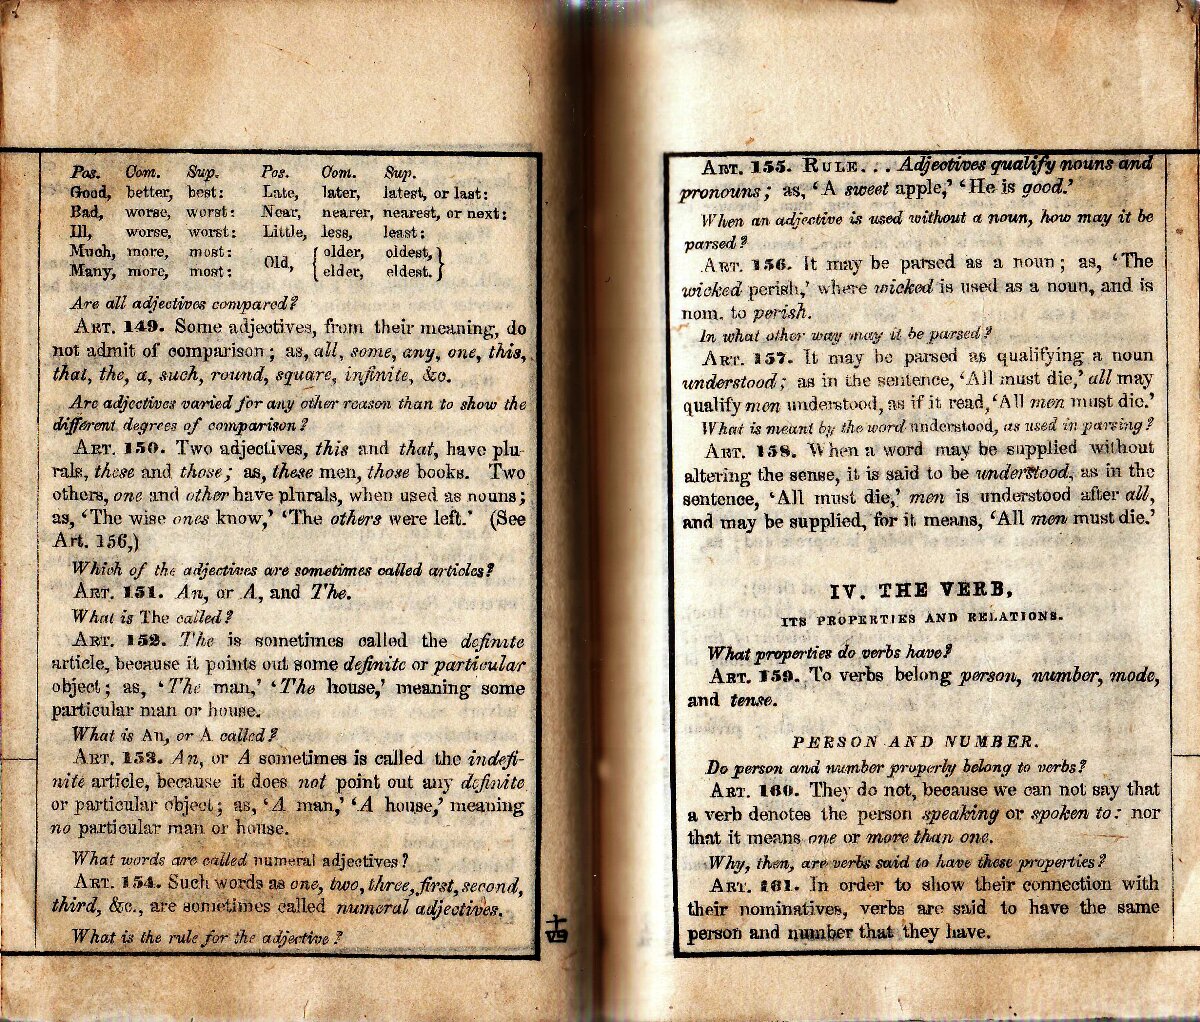 Pos. Com. Sup. Pos. Com. Sup.
Good, better, best: Late, later, latest, or last:
Bad, worse, worst: Near, nearer, nearest, or next:
Ill, worse, worst: Little, less, least:
Much, more, most: Old, { older, oldest, }
Many, more, most: { elder, eldest. }
Are all adjectives compared?
ART. 149. Some adjectives, from their meaning, do
not admit of comparison; as, all, some, any, one, this,
that, the, a, such, round, square, infinite, &c.
Are adjectives varied for any other reason than to show the
different degrees of comparison?
ART. 150. Two adjectives, this and that, have plu-
rals, these and those; as, these men, those books. Two
others, one and other have plurals, when used as nouns;
as, 'The wise ones know,' 'The others were left.' (See
Art. 156,)
Which of the adjectives are sometimes called articles?
ART. 151. An, or A, and The.
What is The called?
ART. 152. The is sometimes called the definite
article, because it points out some definite or particular
object; as, 'The man,' 'The house,' meaning some
particular man or house.
What is An, or A called?
ART. 153. An, or A sometimes is called the indefi-
nite article, because it does not point out any definite
or particular object; as, 'A man,' 'A house,' meaning
no particular man or house.
What words are called numeral adjectives?
ART. 154. Such words as one, two, three, first, second,
third, &c., are sometimes called numeral adjectives.
What is the rule for the adjective?
十四
ART. 155. RULE... Adjectives qualify nouns and
pronouns; as, 'A sweet apple,' 'He is good.'
When an adjective is used without a noun, how may it be
parsed?
ART. 156. It may be parsed as a noun; as, 'The
wicked perish,' where wicked is used as a noun, and is
nom. to perish.
In what other way may it be parsed?
ART. 157. It may be parsed as qualifying a noun
understood; as in the sentence, 'All must die,' all may
qualify men understood, as if it read, 'All men must die.'
What is meant by the word understood, as used in parsing?
ART. 158. When a word may be supplied without
altering the sense, it is said to be understood, as in the
sentence, 'All must die,' men is understood after all,
and may be supplied, for it means, 'All men must die.'
IV. THE VERB,
ITS PROPERTIES AND RELATIONS.
What properties do verbs have?
ART. 159. To verbs belong person, number, mode,
and tense.
PERSON AND NUMBER.
Do person and number properly belong to verbs?
ART. 160. They do not, because we can not say that
a verb denotes the person speaking or spoken to: nor
that it means one or more than one.
Why, then, are verbs said to have these properties?
ART. 161. In order to show their connection with
their nominatives, verbs are said to have the same
person and number that they have.